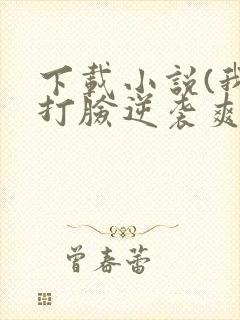 下載小説(我
打臉逆袭爽
曾春蕾